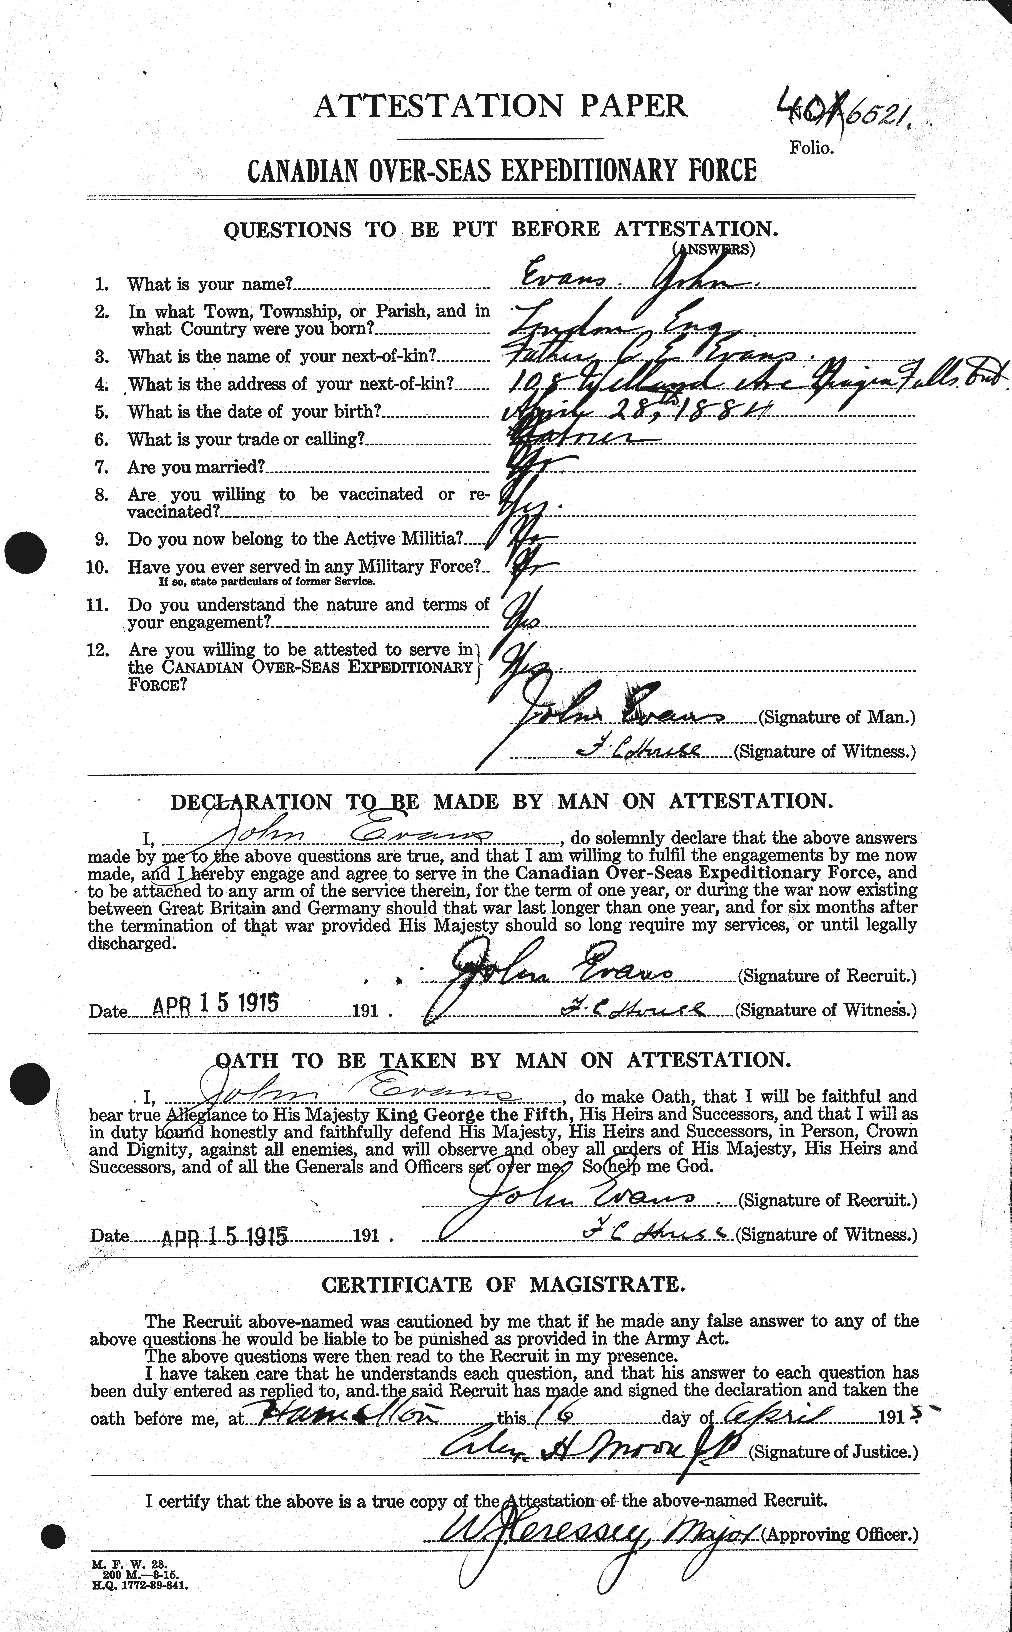 ATTESTATION PAPER
6521.
Folio.
CANADIAN OVER-SEAS EXPEDITIONARY FORCE
QUESTIONS TO BE PUT BEFORE ATTESTATION.
(ANSWERS)
1. What is your name? Evans. John.
2. In what Town, Township, or Parish, and in
what Country were you born? London, Eng
3. What is the name of your next-of-kin? Father, C E Evans.
4. What is the address of your next-of-kin? 108 Welland Ave Niagra Falls Ont.
5. What is the date of your birth? April 28th, 1884
6. What is your trade or calling?
7. Are you married? No
8. Are you willing to be vaccinated or re-
vaccinated? Yes.
9. Do you now belong to the Active Militia? No
10. Have you ever served in any Military Force? No
If so, state particulars of former Service.
11. Do you understand the nature and terms of
your engagement? Yes
12. Are you willing to be attested to serve in
the CANADIAN OVER-SEAS EXPEDITIONARY Yes.
FORCE?
John Evans (Signature of Man.)
F. C House (Signature of Witness.)
DECLARATION TO BE MADE BY MAN ON ATTESTATION.
I, John Evans, do solemnly declare that the above answers
made by me to the above questions are true, and that I am willing to fulfil the engagements by me now
made, and I hereby engage and agree to serve in the Canadian Over-Seas Expeditionary Force, and
to be attached to any arm of the service therein, for the term of one year, or during the war now existing
between Great Britain and Germany should that war last longer than one year, and for six months after
the termination of that war provided His Majesty should so long require my services, or until legally
discharged.
John Evans (Signature of Recruit.)
Date APR 15 1915 191 . F. C House (Signature of Witness.)
OATH TO BE TAKEN BY MAN ON ATTESTATION.
I, John Evans, do make Oath, that I will be faithful and
bear true Allegiance to His Majesty King George the Fifth, His Heirs and Successors, and that I will as
in duty bound honestly and faithfully defend His Majesty, His Heirs and Successors, in Person, Crown
and Dignity, against all enemies, and will observe and obey all orders of His Majesty, His Heirs and
Successors, and of all the Generals and Officers set over me. So help me God.
John Evans (Signature of Recruit.)
Date APR 15 1915 191 . F C House (Signature of Witness.)
CERTIFICATE OF MAGISTRATE.
The Recruit above-named was cautioned by me that if he made any false answer to any of the
above questions he would be liable to be punished as provided in the Army Act.
The above questions were then read to the Recruit in my presence.
I have taken care that he understands each question, and that his answer to each question has
been duly entered as replied to, and the said Recruit has made and signed the declaration and taken the
oath before me, at Hamilton this 16 day of April 1915
Alex H Moore JP (Signature of Justice.)
I certify that the above is a true copy of the Attestation of the above-named Recruit.
Major (Approving Officer.)
M. F. W. 23.
200 M.—8-15.
H.Q. 1772-39-841.